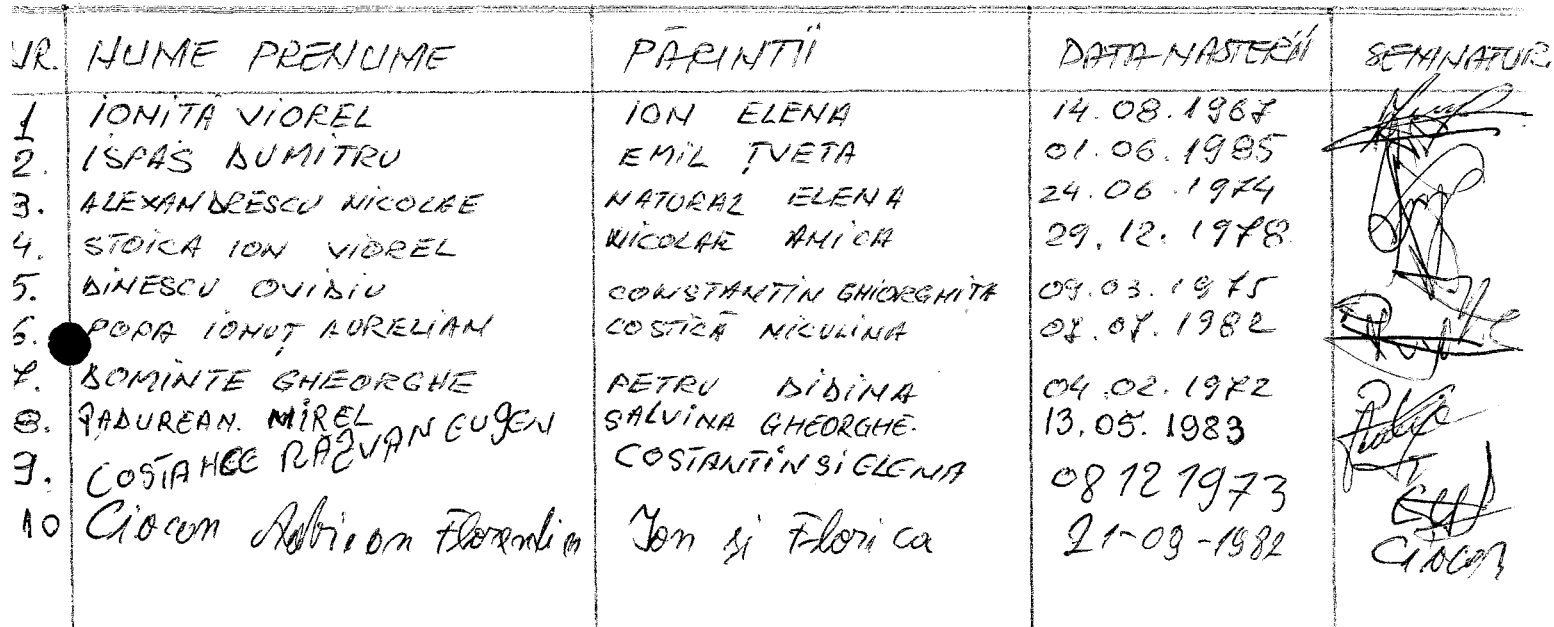 NR. NUME PRENUME PĂRINTII DATA NASTERII SEMNATUR
1 IONITĂ VIOREL ION ELENA 14.08.1967
2. ISPAS DUMITRU EMIL ȚVETA 01.06.1985
3. ALEXANDRESCU NICOLAE NATURAL ELENA 24.06.1974
4. STOICA ION VIOREL NICOLAE AMICA 29.12.1978
5. DINESCU OVIDIU CONSTANTIN GHIORGHITA 09.03.1975
6. POPA IONUȚ AURELIAN COSTICĂ NICULINA 07.07.1982
7. DOMINTE GHEORGHE PETRU DIDINA 04.02.1972
8. PADUREAN. MIREL SALVINA GHEORGHE. 13.05.1983
9. COSTANCE RĂZVAN EUGEN COSTANTIN SI ELENA 08 12 1973
10 Ciocan Florentin Ion și Florica 21-09-1982 Ciocan